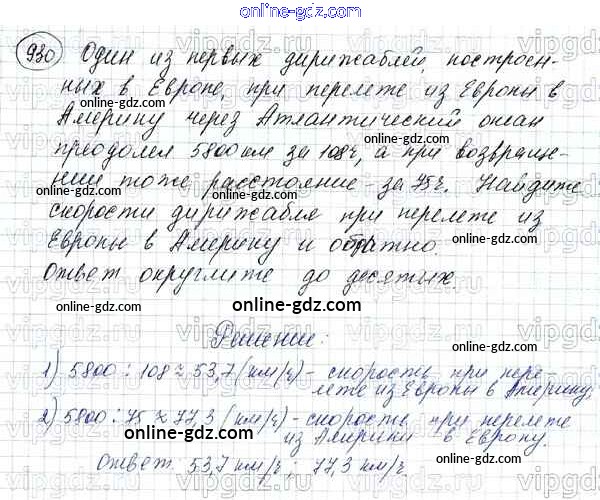 online-gdz.com
930 Один из первых дирижаблей, построен-
ных в Европе, при перелете из Европы в
online-gdz.com
Америку через Атлантический океан
online-gdz.com
преодолел 5800 км за 108 ч, а при возвраще-
нии тоже расстояние - за 75 ч. Найдите
online-gdz.com
скорости дирижабля при перелете из
Европы в Америку и обратно.
online-gdz.com
Ответ округлите до десятых.
online-gdz.com
online-gdz.com
Решение:
online-gdz.com
1) 5800 : 108 ≈ 53,7 (км/ч) - скорость при пере-
лете из Европы в Америку,
online-gdz.com
2) 5800 : 75 ≈ 77,3 (км/ч) - скорость при перелете
online-gdz.com
из Америки в Европу.
Ответ 53,7 км/ч; 77,3 км/ч
online-gdz.com